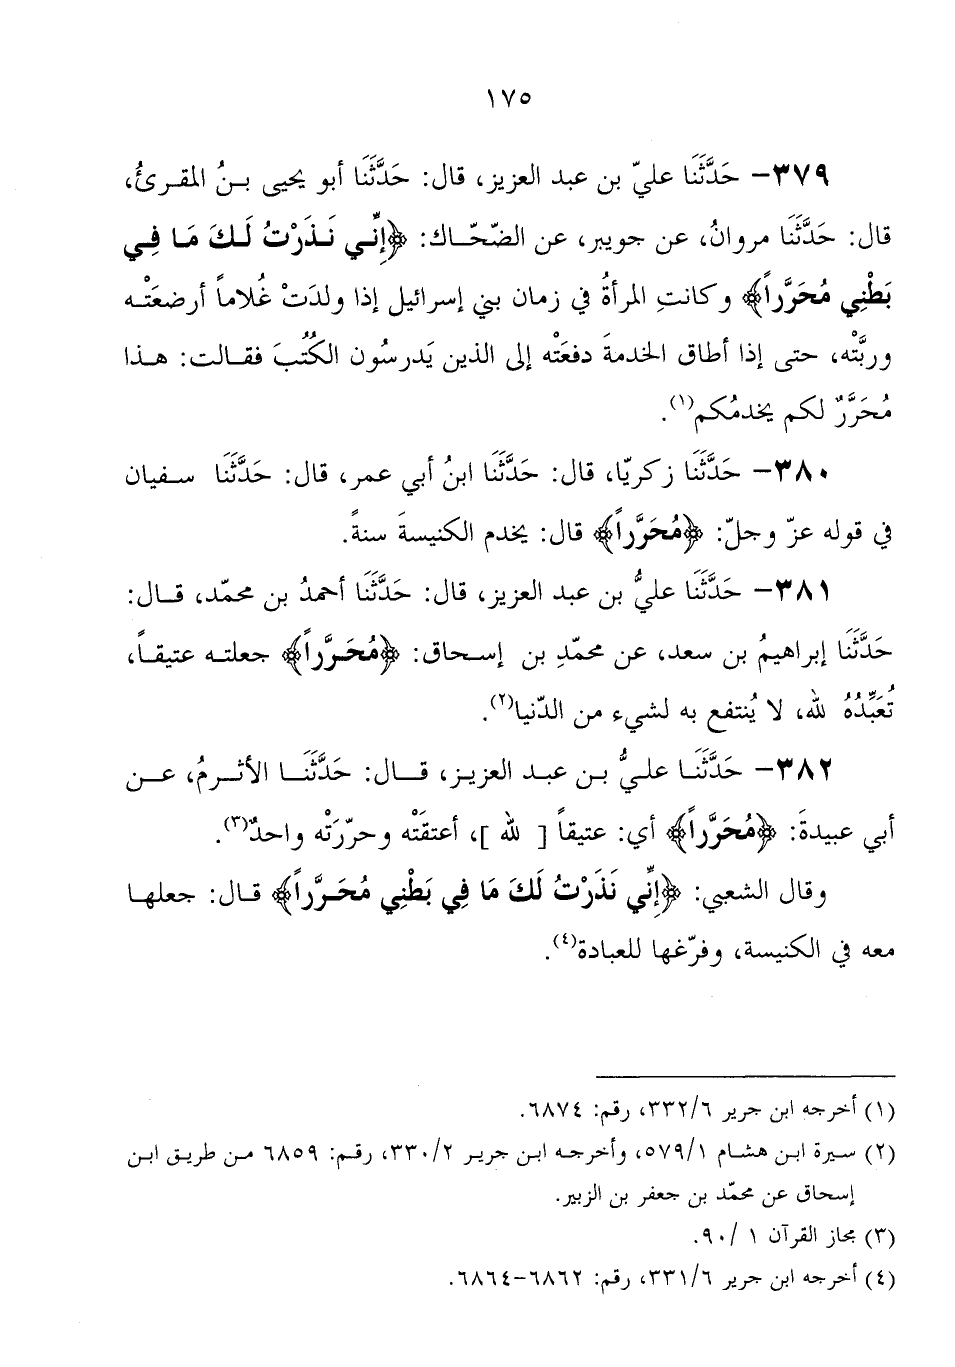 ١٧٥
٣٧٩- حَدَّثَنَا عليّ بن عبد العزيز، قال: حَدَّثَنَا أبو يحيى بـنُ المقـرئُ،
قال: حَدَّثَنَا مروانُ، عن جويبر، عن الضّحّـاك: ﴿إِنِّـي نَـذَرْتُ لَـكَ مَـا فِـي
بَطْنِي مُحَرَّراً﴾ وكانتِ المرأةُ في زمان بني إسرائيل إذا ولدَتْ غُلاماً أرضعَتْـه
وربَّتْه، حتى إذا أطاق الخدمةَ دفعَتْه إلى الذين يَدرسُون الكُتُبَ فقـالت: هـذا
مُحَرَّرٌ لكم يخدمُكم(١).
٣٨٠- حَدَّثَنَا زكريّا، قال: حَدَّثَنَا ابنُ أبي عمر، قال: حَدَّثَنَا سـفيان
في قوله عزّ وجلّ: ﴿مُحَرَّراً﴾ قال: يخدم الكنيسةَ سنةً.
٣٨١- حَدَّثَنَا عليُّ بن عبد العزيز، قال: حَدَّثَنَا أحمدُ بن محمّد، قـال:
حَدَّثَنَا إبراهيمُ بن سعد، عن محمّدِ بن إسـحاق: ﴿مُحَـرَّراً﴾ جعلتـه عتيقـاً،
تُعَبِّدُهُ لله، لا يُنتفع به لشيء من الدّنيا(٢).
٣٨٢- حَدَّثَنَـا علـيُّ بـن عبـد العزيـز، قـال: حَدَّثَنَـا الأثـرمُ، عـن
أبي عبيدةَ: ﴿مُحَرَّراً﴾ أي: عتيقاً [ لله ]، أعتقَتْه وحرّرَتْه واحدٌ(٣).
وقال الشعبي: ﴿إِنِّي نَذَرْتُ لَكَ مَا فِي بَطْنِي مُحَـرَّراً﴾ قـال: جعلهـا
معه في الكنيسة، وفرّغها للعبادة(٤).
(١) أخرجه ابن جرير ٣٣٢/٦، رقم: ٦٨٧٤.
(٢) سـيرة ابـن هشـام ٥٧٩/١، وأخرجـه ابـن جريـر ٣٣٠/٢، رقـم: ٦٨٥٩ مـن طريق ابـن
إسحاق عن محمّد بن جعفر بن الزبير.
(٣) مجاز القرآن ١ /٩٠.
(٤) أخرجه ابن جرير ٣٣١/٦، رقم: ٦٨٦٢-٦٨٦٤.